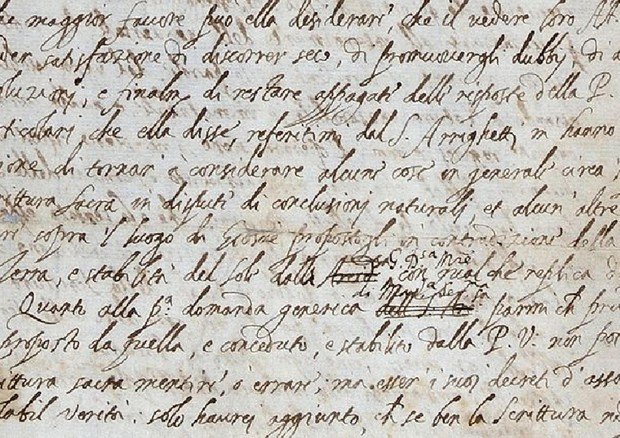 he maggior favore può ella desiderare, che il vedere loro Al
der satisfazione di discorrer seco, di promuovergli dubbij, di a
oluzioni, e finalmᵉ di restare appagati delle risposte della P.
rticolari che ella disse, referitimi dal S. Arrighetti m hanno
ione di tornar' à considerare alcune cose in generale circa
rittura sacra in dispute di conclusioni naturali, et alcun'altre
re sopra il luogo di Giosue propostogli in contradizione della
Terra, e stabilità del Sole dalla con qualche replica d
di Madᵃ Serᵐᵃ
Quanto alla pᵃ domanda generica parmi ch pru
proposto da quella, e conceduto, e stabilito dalla P. V. non pote
ittura sacra mentire, ò errare, ma esser' i suoi decreti d'asso
labil verità. solo haurei aggiunto, ch se ben la Scrittura no